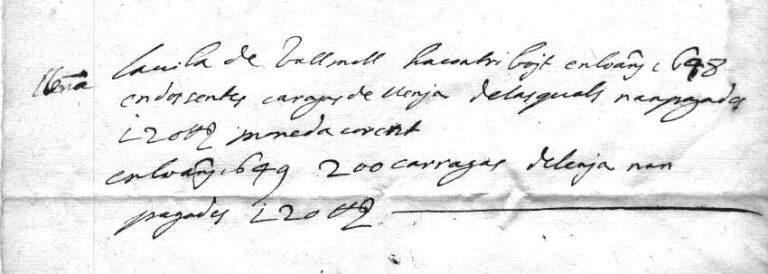 llenia la vila de Vallmoll ha contribuit en lo añy 1648
en doscentes cargas de llenja de las quals nan pagades
120 ₶ moneda corent
en lo añy 1649 200 carragas de lenja nan
pagades 120 ₶